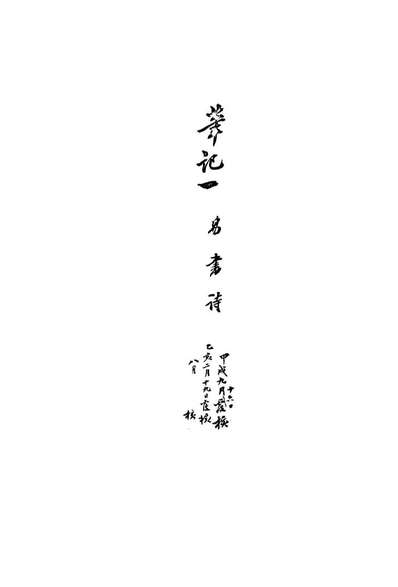 筆記一
易書詩
甲戌九月十六日校
乙亥二月十九日校
八月校